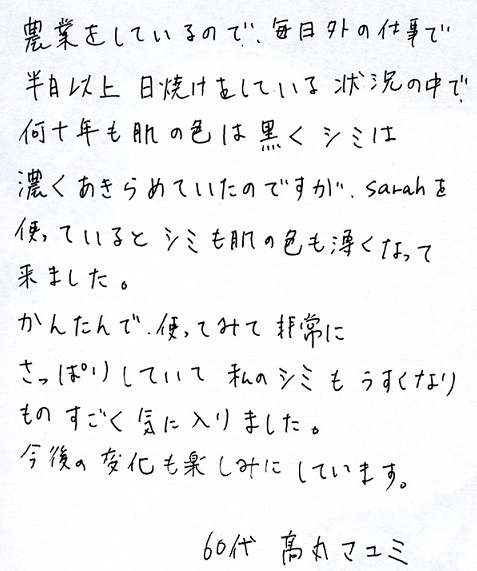 農業をしているので、毎日外の仕事で
半日以上 日焼けをしている 状況の中で
何十年も肌の色は黒く シミは
濃くあきらめていたのですが、sarahを
使っていると シミも肌の色も薄くなって
来ました。
かんたんで、使ってみて 非常に
さっぱりしていて 私のシミも うすくなり
ものすごく気に入りました。
今後の変化も楽しみにしています。
60代 高丸マユミ